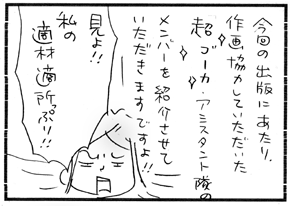 今回の出版にあたり、
作画協力していただいた
超ゴーカ・アシスタント隊の
メンバーを紹介させて
いただきますですよ!!
見よ!!
私の
適材適所っぷり!!